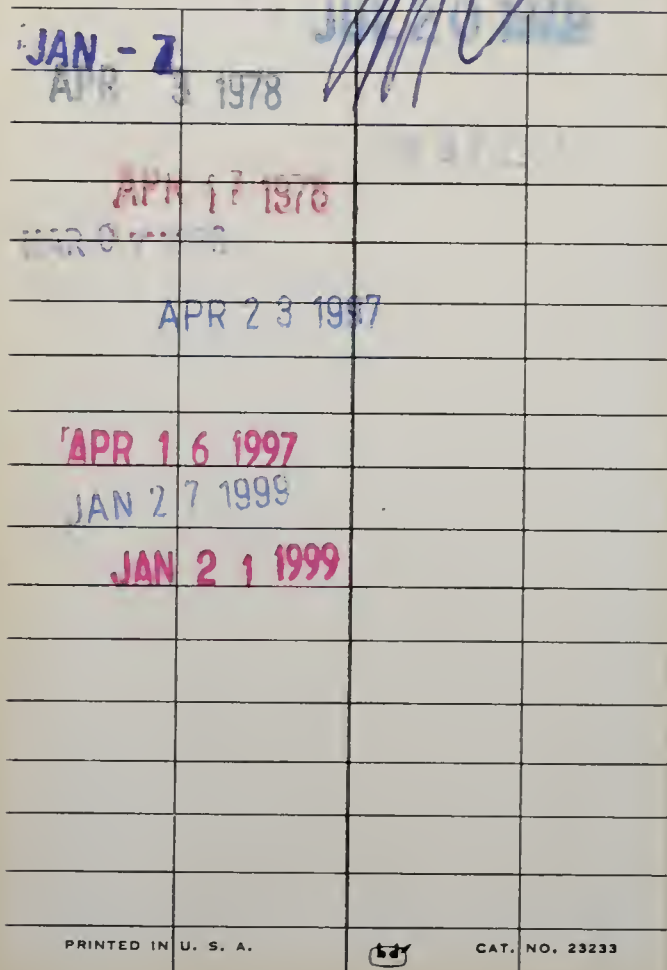 JAN - 7
APR 3 1978
APR 17 1978
MAR 0
APR 23 1997
APR 16 1997
JAN 27 1999
JAN 21 1999
PRINTED IN U. S. A. bd CAT. NO. 23233